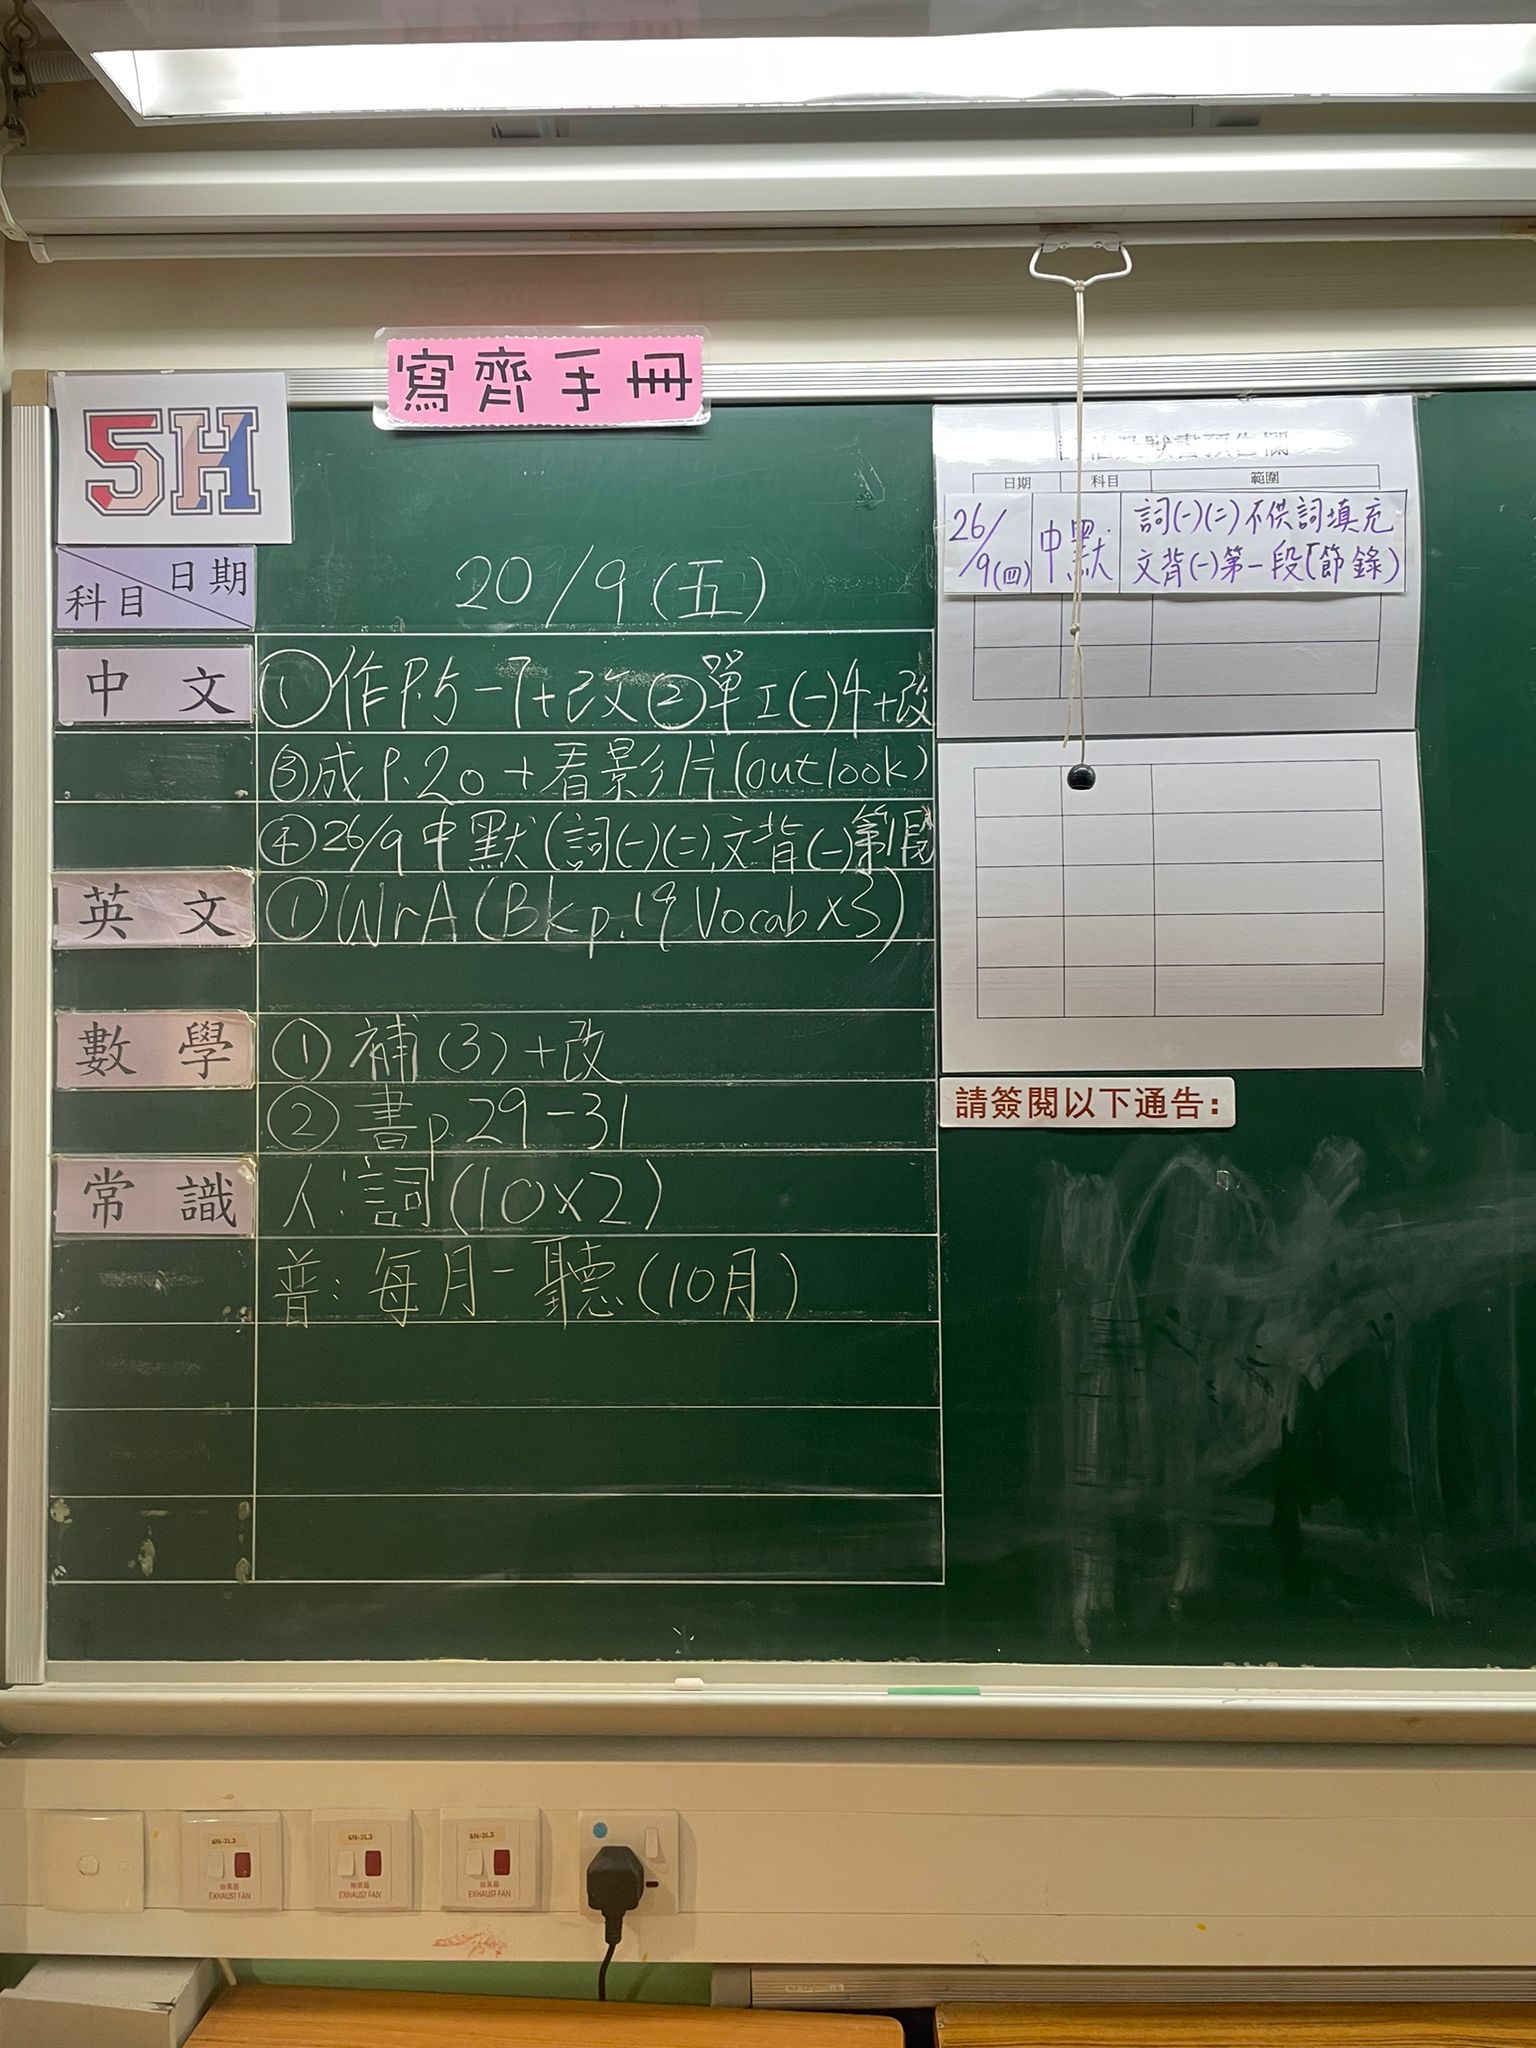 寫齊手冊
5H
日期
科目
20/9(五)
中文
①作P.5-7+改 ②單工(一)4+改
③成P.20+看影片(outlook)
④26/9中默(詞(一)(二),文背(一)第1段
英文
①WrA(Bk p.19 Vocab x3)
數學
①補(3)+改
②書p.29-31
常識
人:詞(10x2)
普:每月一聽(10月)
默書預告欄
日期 科目 範圍
26/9(四) 中默 詞(一)(二)不供詞填充
文背(一)第一段(節錄)
請簽閱以下通告:
6N-3L3
抽氣扇
EXHAUST FAN
6N-3L3
抽氣扇
EXHAUST FAN
6N-3L3
抽氣扇
EXHAUST FAN